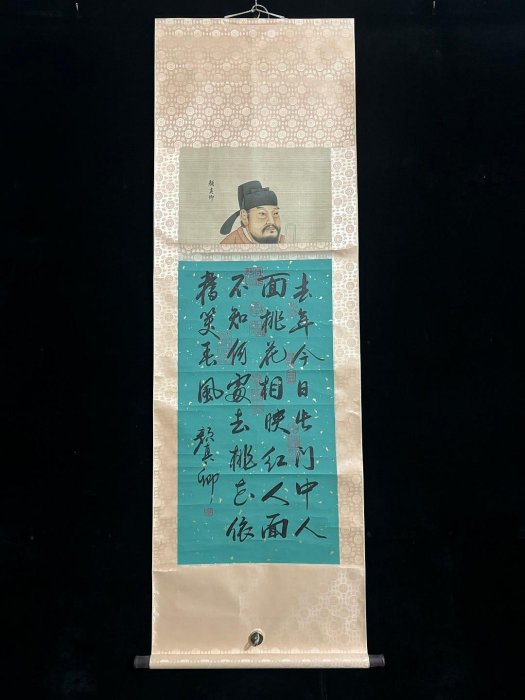 顏真卿
去年今日此门中人
面桃花相映红人面
不知何處去桃花依
舊笑春風
顏真卿